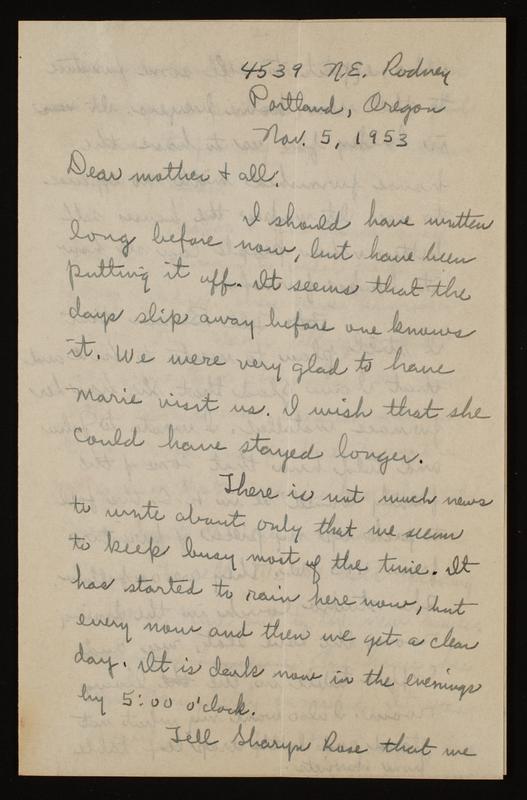 4539 N.E. Rodney
Portland, Oregon
Nov. 5, 1953
Dear mother & all:
I should have written
long before now, but have been
putting it off. It seems that the
days slip away before one knows
it. We were very glad to have
Marie visit us. I wish that she
could have stayed longer.
There is not much news
to write about only that we seem
to keep busy most of the time. It
has started to rain here now, but
every now and then we get a clear
day. It is dark now in the evenings
by 5:00 o'clock.
Tell Sharyn Rose that we